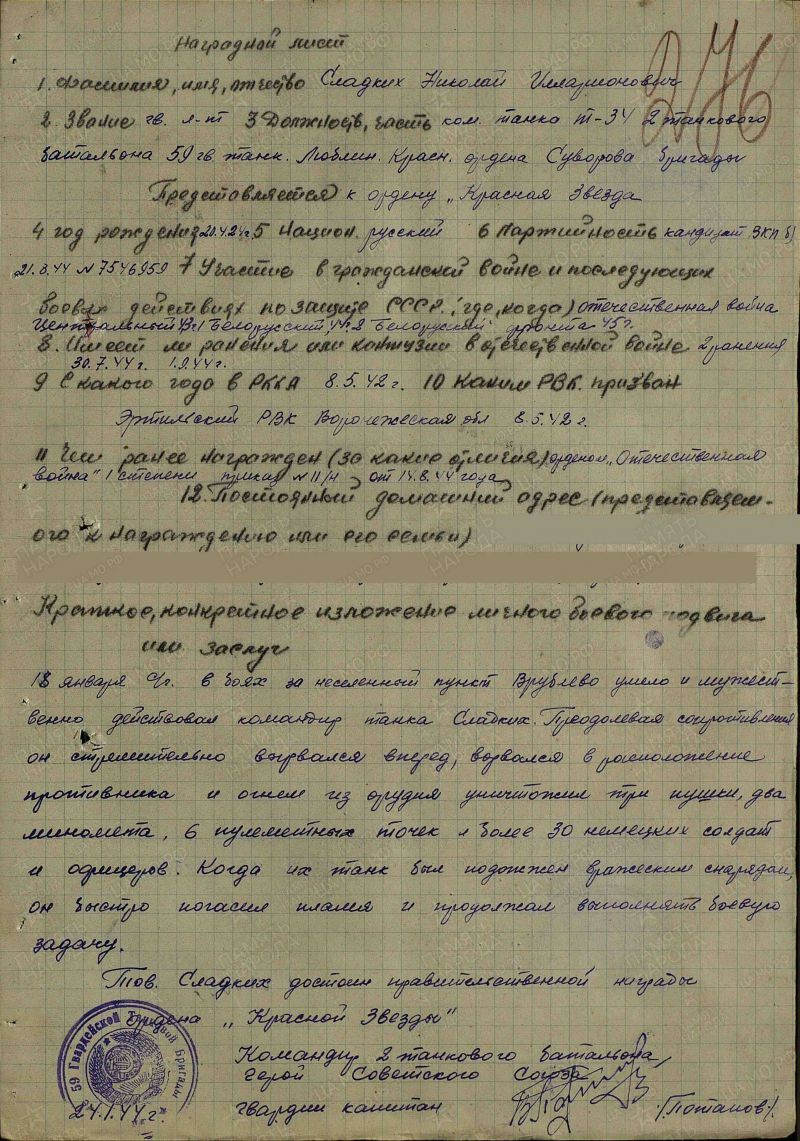 Наградной лист
276
1. Фамилия, имя, отчество Сладких Николай Илларионович
2. Звание гв. л-т 3 Должность, часть ком. танка Т-34 2 танкового
батальона 59 гв. танк. Люблин. Красн. ордена Суворова бригады
Представляется к ордену „Красная Звезда
4 год рождения 20.4.24 г. 5 Национ. русский 6 Партийность кандидат ВКП(б)
21.3.44 N 7546959 7 Участие в гражданской войне и последующих
боевых действиях по защите СССР (где, когда) отечественная война
Центральный 43 г 1 Белорусский, 44 г 2 Белорусский фронта 45 г.
8. Имеет ли ранения или контузии в отечественной войне 2 ранения
30.7.44 г. 1.9.44 г.
9 С какого года в РККА 8.5.42 г. 10 Каким РВК призван
Эртильский РВК Воронежская обл 8.5.42 г.
11 Чем ранее награжден (за какие отличия) орденом „Отечественная
война" 1 степени приказ N 11/н от 14.8.44 года
12. Постоянный домашний адрес (представляем-
ого к награждению или его семьи)
Краткое, конкретное изложение личного боевого подвига
или заслуг
18 января с/г. в боях за населенный пункт Врублево умело и мужест-
венно действовал командир танка Сладких. Преодолевая сопротивления
он стремительно вырвался вперед, ворвался в расположение
противника и огнем из орудия уничтожил три пушки, два
миномета, 6 пулеметных точек и более 30 немецких солдат
и офицеров. Когда их танк был подожжен вражеским снарядом,
он быстро погасил пламя и продолжал выполнять боевую
задачу.
Тов. Сладких достоин правительственной награды
ордена „Красной Звезды"
Командир 2 танкового батальона
Герой Советского Союза
гвардии капитан /Потапов/
59 Гвардейской Танковой Бригады
24.1.44 г.